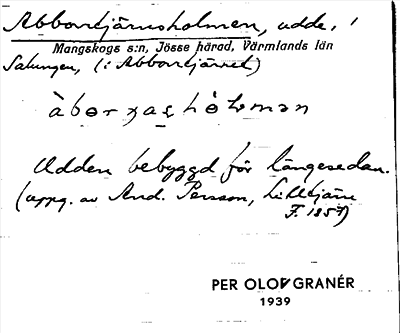 Abbortjärnsholmen, udde, i
Mangskogs s:n, Jösse härad, Värmlands län
Salungen, (i Abbortjärnet)
Udden bebyggd för längesedan.
(uppg. av And. Persson, Lilltjärn
F. 1857)
PER OLOV GRANÉR
1939